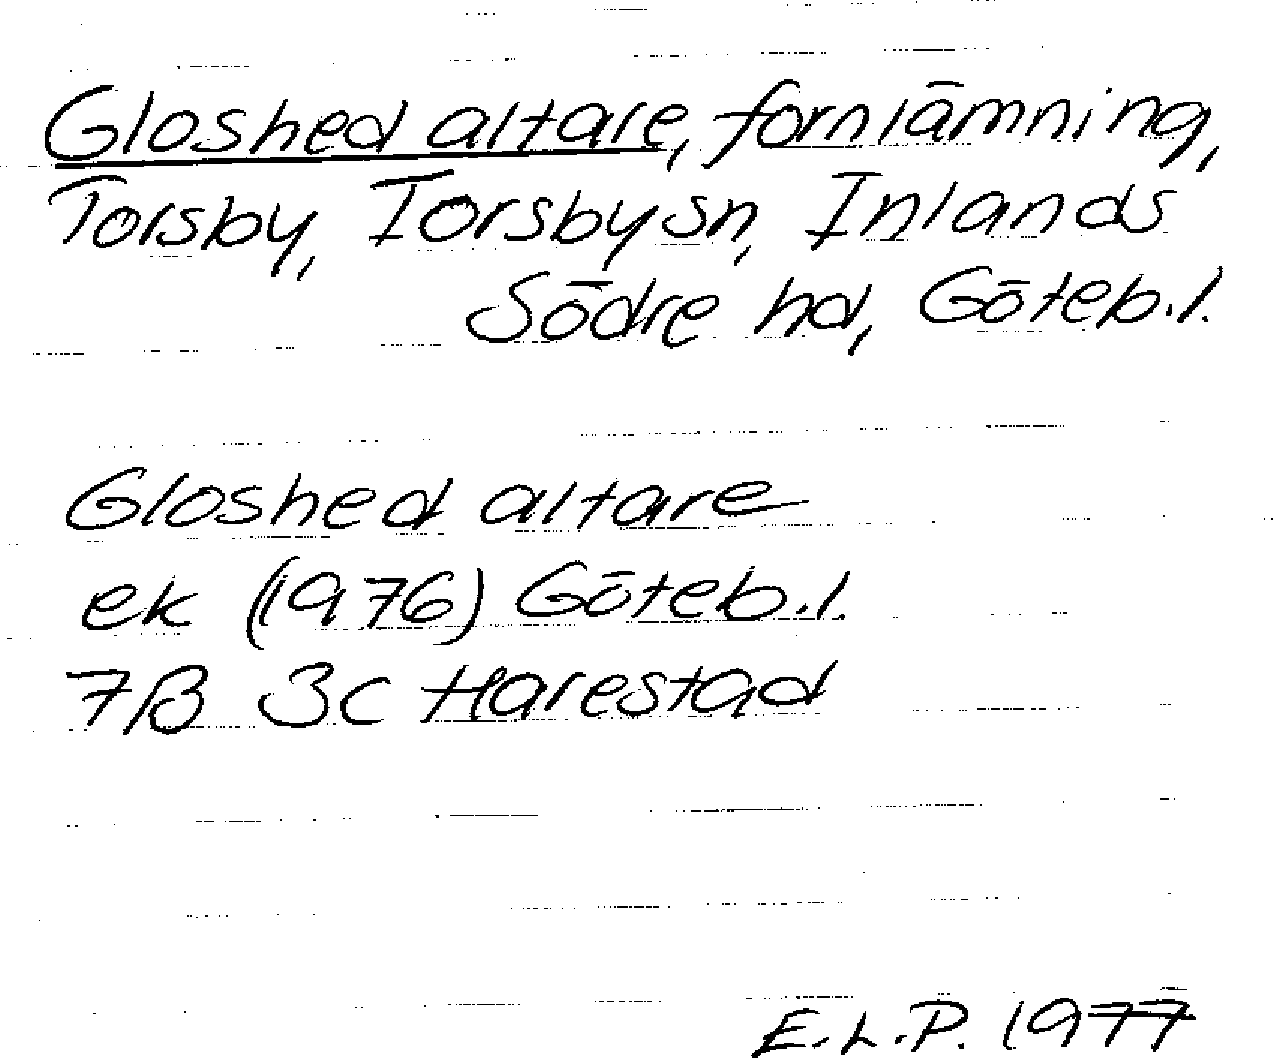 Gloshed altare, fornlämning,
Torsby, Torsby sn, Inlands
Södre hd, Göteb.l.
Gloshed altare
ek (1976) Göteb.l.
7B 3c Harestad
E.L.P. 1977